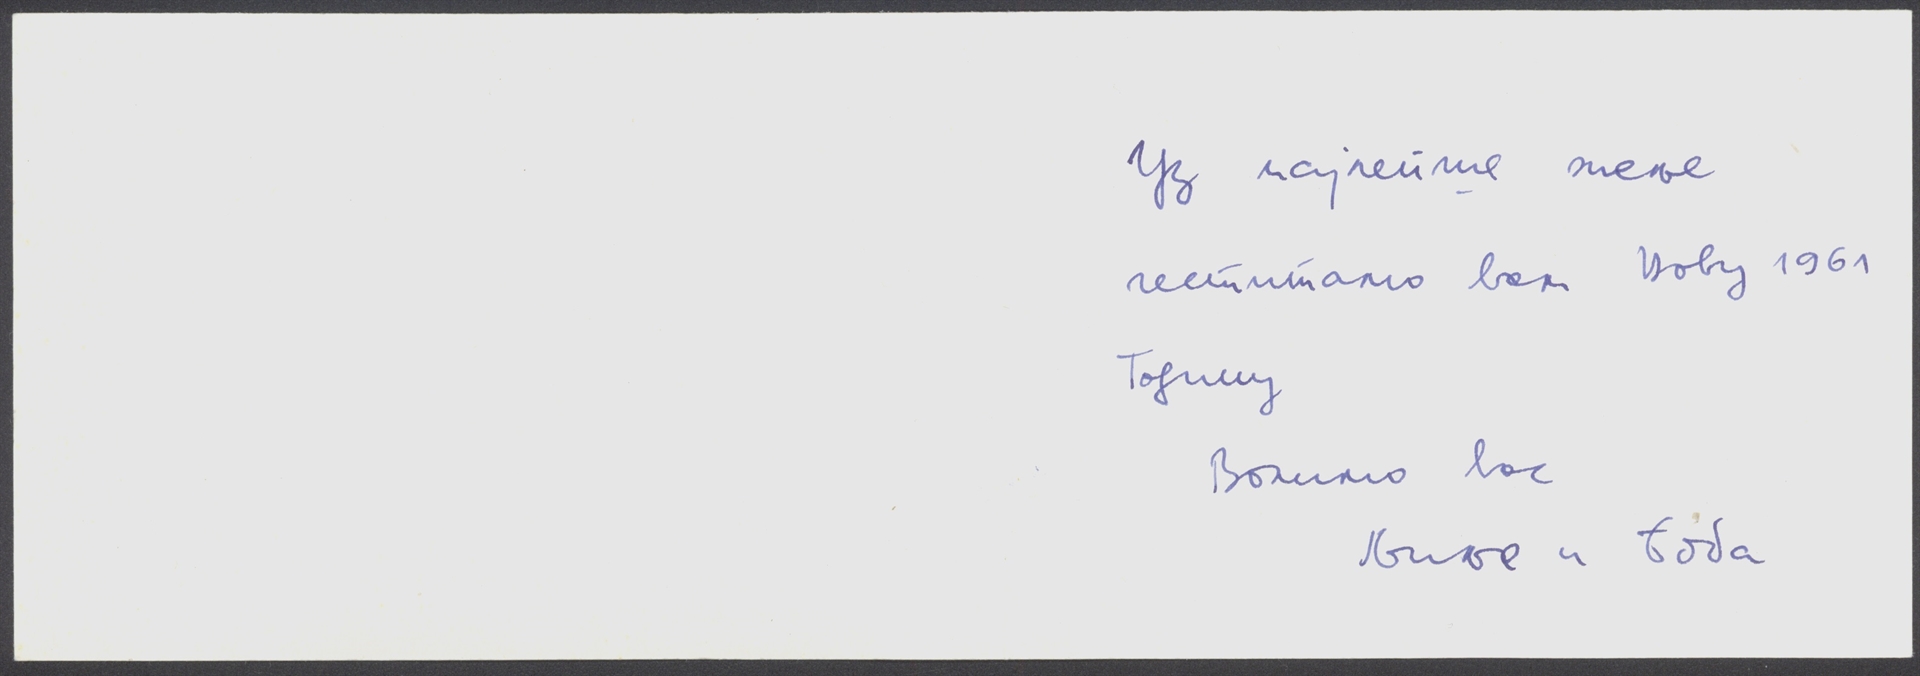 Уз најлепше жеље
честитамо вам Нову 1961
Годину
Волимо вас
и Боба